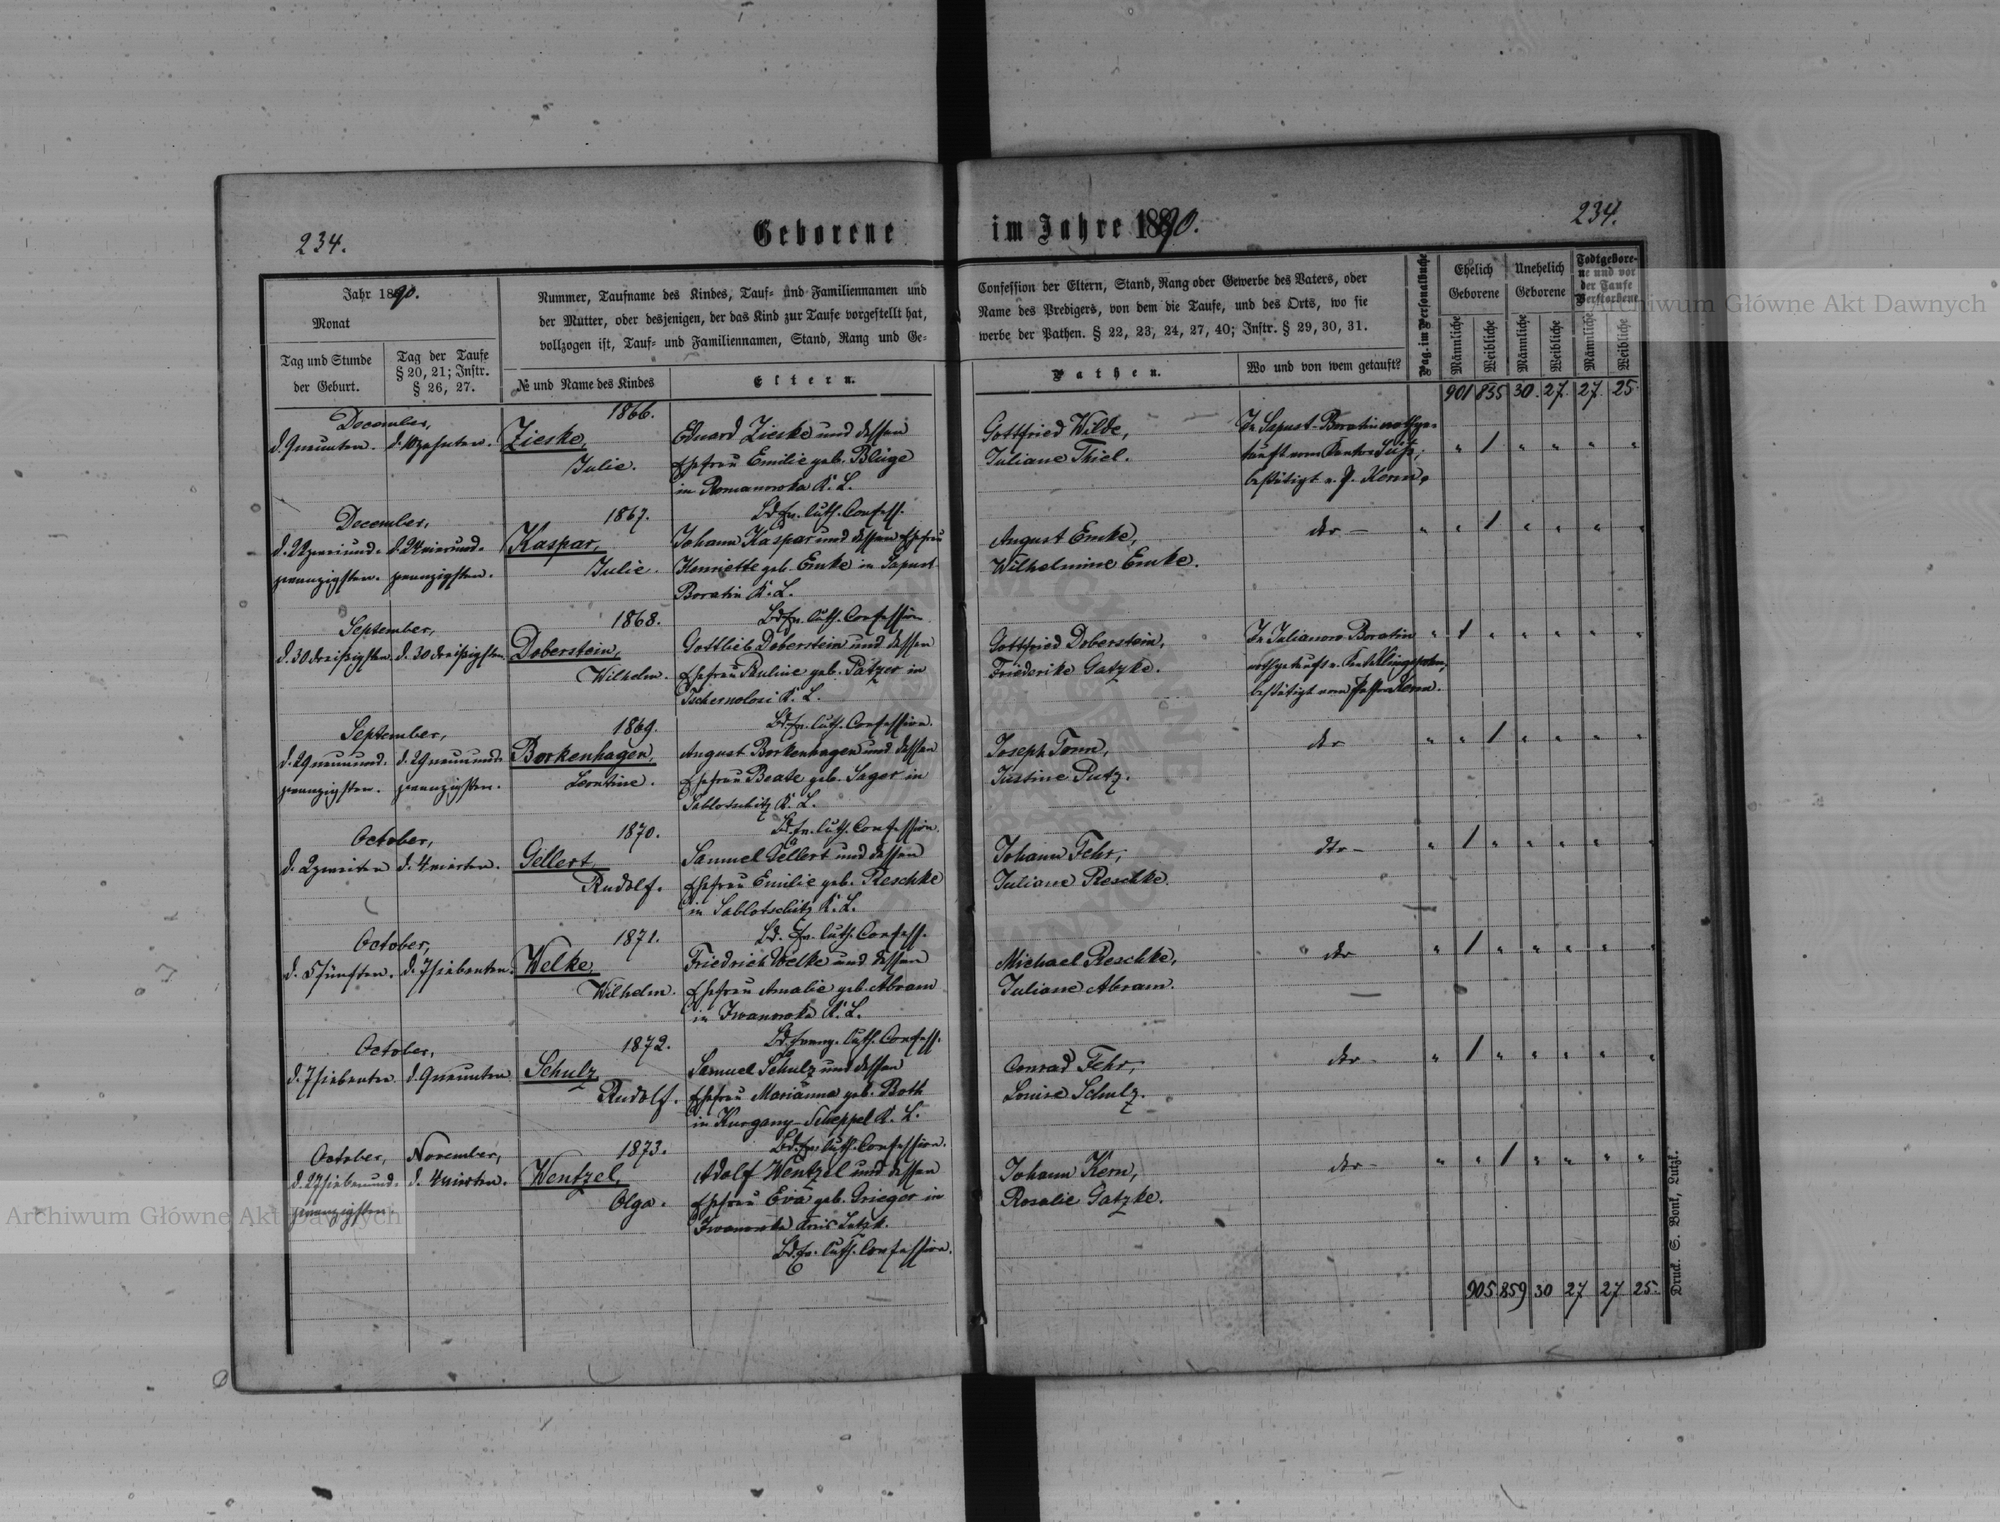 234.
Geborene im Jahre 1890.
234.
Jahr 1890.
Monat
Tag und Stunde
der Geburt.
Tag der Taufe
§ 20, 21; Instr.
§ 26, 27.
Nummer, Taufname des Kindes, Tauf- und Familiennamen und
der Mutter, oder desjenigen, der das Kind zur Taufe vorgestellt hat,
vollzogen ist, Tauf- und Familiennamen, Stand, Rang und Ge-
№ und Name des Kindes
Eltern.
Confession der Eltern, Stand, Rang oder Gewerbe des Vaters, oder
Name des Predigers, von dem die Taufe, und des Orts, wo sie
werbe der Pathen. § 22, 23, 24, 27, 40; Instr. § 29, 30, 31.
Pathen.
Wo und von wem getauft?
Pag. im Personalbuche
Ehelich
Geborene
Unehelich
Geborene
Todtgebore-
ne und vor
der Taufe
Verstorbene
Männliche
Weibliche
Männliche
Weibliche
Männliche
Weibliche
901 855 30. 27. 27. 25.
December,
d. 9 neunten. d. 10 zehnten.
1866.
Zieske,
Julie.
Eduard Zieske und dessen
Ehefrau Emilie geb. Blüge
in Romanowka K. L.
Bd. Ev. luth. Confess.
Gottfried Wilde,
Juliane Thiel.
In Sapust-Boratin nothge-
tauft vom Kantor
bestätigt v. P. Kern.
" 1 " " " "
December,
d. 22 zweiund- d. 24 vierund-
zwanzigsten. zwanzigsten.
1867.
Kaspar,
Julie.
Johann Kaspar und dessen Ehefrau
Henriette geb. Emke in Sapust-
Boratin K. L.
Bd. Ev. luth. Confession
August Emke,
Wilhelmine Emke.
dto —
" " 1 " " " "
September,
d. 30 dreißigsten. d. 30 dreißigsten.
1868.
Doberstein,
Wilhelm.
Gottlieb Doberstein und dessen
Ehefrau Pauline geb. Pätzer in
Tschernolosi K. L.
Bd. Ev. luth. Confession.
Gottfried Doberstein,
Friederike Gatzke.
In Julianow-Boratin
nothgetauft v. Kant.
bestätigt vom Pastor Kern.
" 1 " " " " "
September,
d. 29 neunund- d. 29 neunund-
zwanzigsten. zwanzigsten.
1869.
Borkenhagen,
Leontine.
August Borkenhagen und dessen
Ehefrau Beate geb. Sager in
Sablotschitz K. L.
Bd. Ev. luth. Confession.
Joseph Tonn,
Justine Putz.
dto
" " 1 " " " "
October,
d. 2 zweiten d. 4 vierten.
1870.
Gellert
Rudolf.
Samuel Gellert und dessen
Ehefrau Emilie geb. Reschke
in Sablotschitz K. L.
Bd. Ev. luth. Confess.
Johann Fehr,
Juliane Reschke.
dto —
" 1 " " " " "
October,
d. 5 fünften. d. 7 siebenten.
1871.
Welke,
Wilhelm.
Friedrich Welke und dessen
Ehefrau Amalie geb. Abram
in Iwanowka K. L.
Bd. Evang. luth. Confess.
Michael Reschke,
Juliane Abram.
" dto
" 1 " " " " "
October,
d. 7 siebenten. d. 9 neunten
1872.
Schulz
Rudolf.
Samuel Schulz und dessen
Ehefrau Marianna geb. Both
in Kurgany-Scheppel K. L.
Bd. Ev. luth. Confession.
Conrad Fehr,
Louise Schulz.
dto —
" 1 " " " " "
October, November,
d. 27 siebenund- d. 4 vierten.
zwanzigsten.
1873.
Wentzel,
Olga.
Adolf Wentzel und dessen
Ehefrau Eva geb. Grieger in
Iwanowka Kreis Lutzk.
Bd. Ev. luth. Confession.
Johann Kern,
Rosalie Gatzke.
dto —
" " 1 " " " "
905 859 30 27 27 25.
Druck. S. Bonk, Lutzk.
Archiwum Główne Akt Dawnych
Archiwum Główne Akt Dawnych